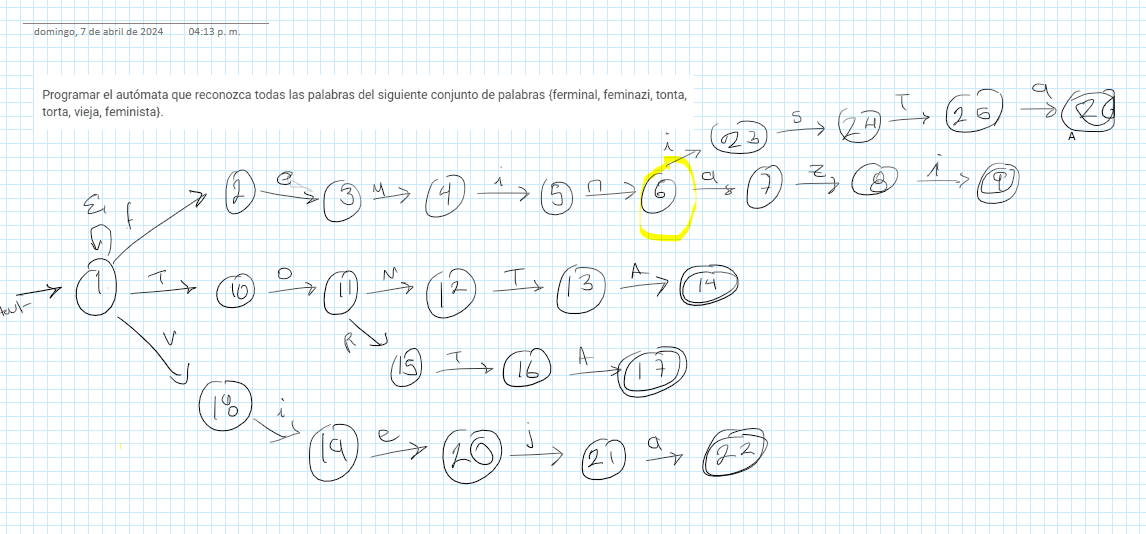 domingo, 7 de abril de 2024 04:13 p. m.
Programar el autómata que reconozca todas las palabras del siguiente conjunto de palabras {ferminal, feminazi, tonta,
torta, vieja, feminista}.
i 23 s 24 T 25 a 26
A
f 2 e 3 M 4 i 5 n 6 a 7 z 8 i 9
1 T 10 O 11 N 12 T 13 A 14
R 15 T 16 A 17
V 18 i 19 e 20 j 21 a 22